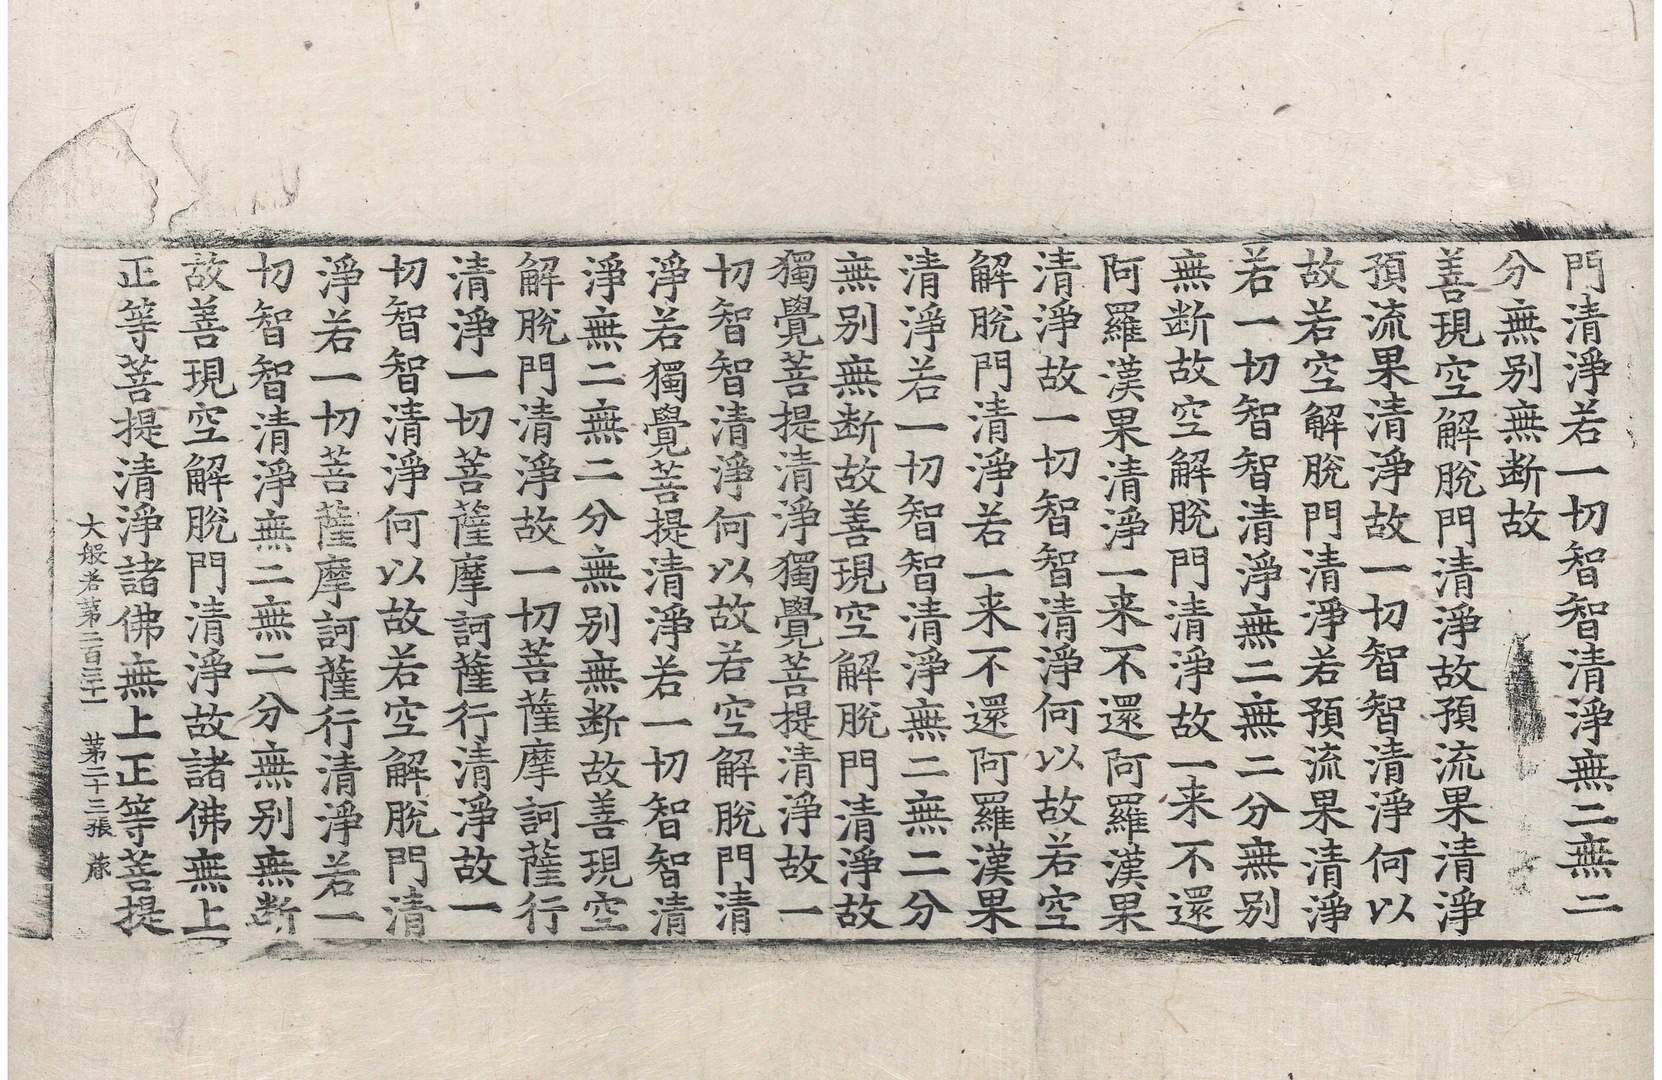 門清淨若一切智智清淨無二無二
分無別無断故
善現空解脫門清淨故預流果清淨
預流果清淨故一切智智清淨何以
故若空解脫門清淨若預流果清淨
若一切智智清淨無二無二分無別
無断故空解脫門清淨故一来不還
阿羅漢果清淨一来不還阿羅漢果
清淨故一切智智清淨何以故若空
解脫門清淨若一来不還阿羅漢果
清淨若一切智智清淨無二無二分
無別無断故善現空解脫門清淨故
獨覺菩提清淨獨覺菩提清淨故一
切智智清淨何以故若空解脫門清
淨若獨覺菩提清淨若一切智智清
淨無二無二分無別無断故善現空
解脫門清淨故一切菩薩摩訶薩行
清淨一切菩薩摩訶薩行清淨故一
切智智清淨何以故若空解脫門清
淨若一切菩薩摩訶薩行清淨若一
切智智清淨無二無二分無別無断
故善現空解脫門清淨故諸佛無上
正等菩提清淨諸佛無上正等菩提
大般若第二百三十一 第二十三張